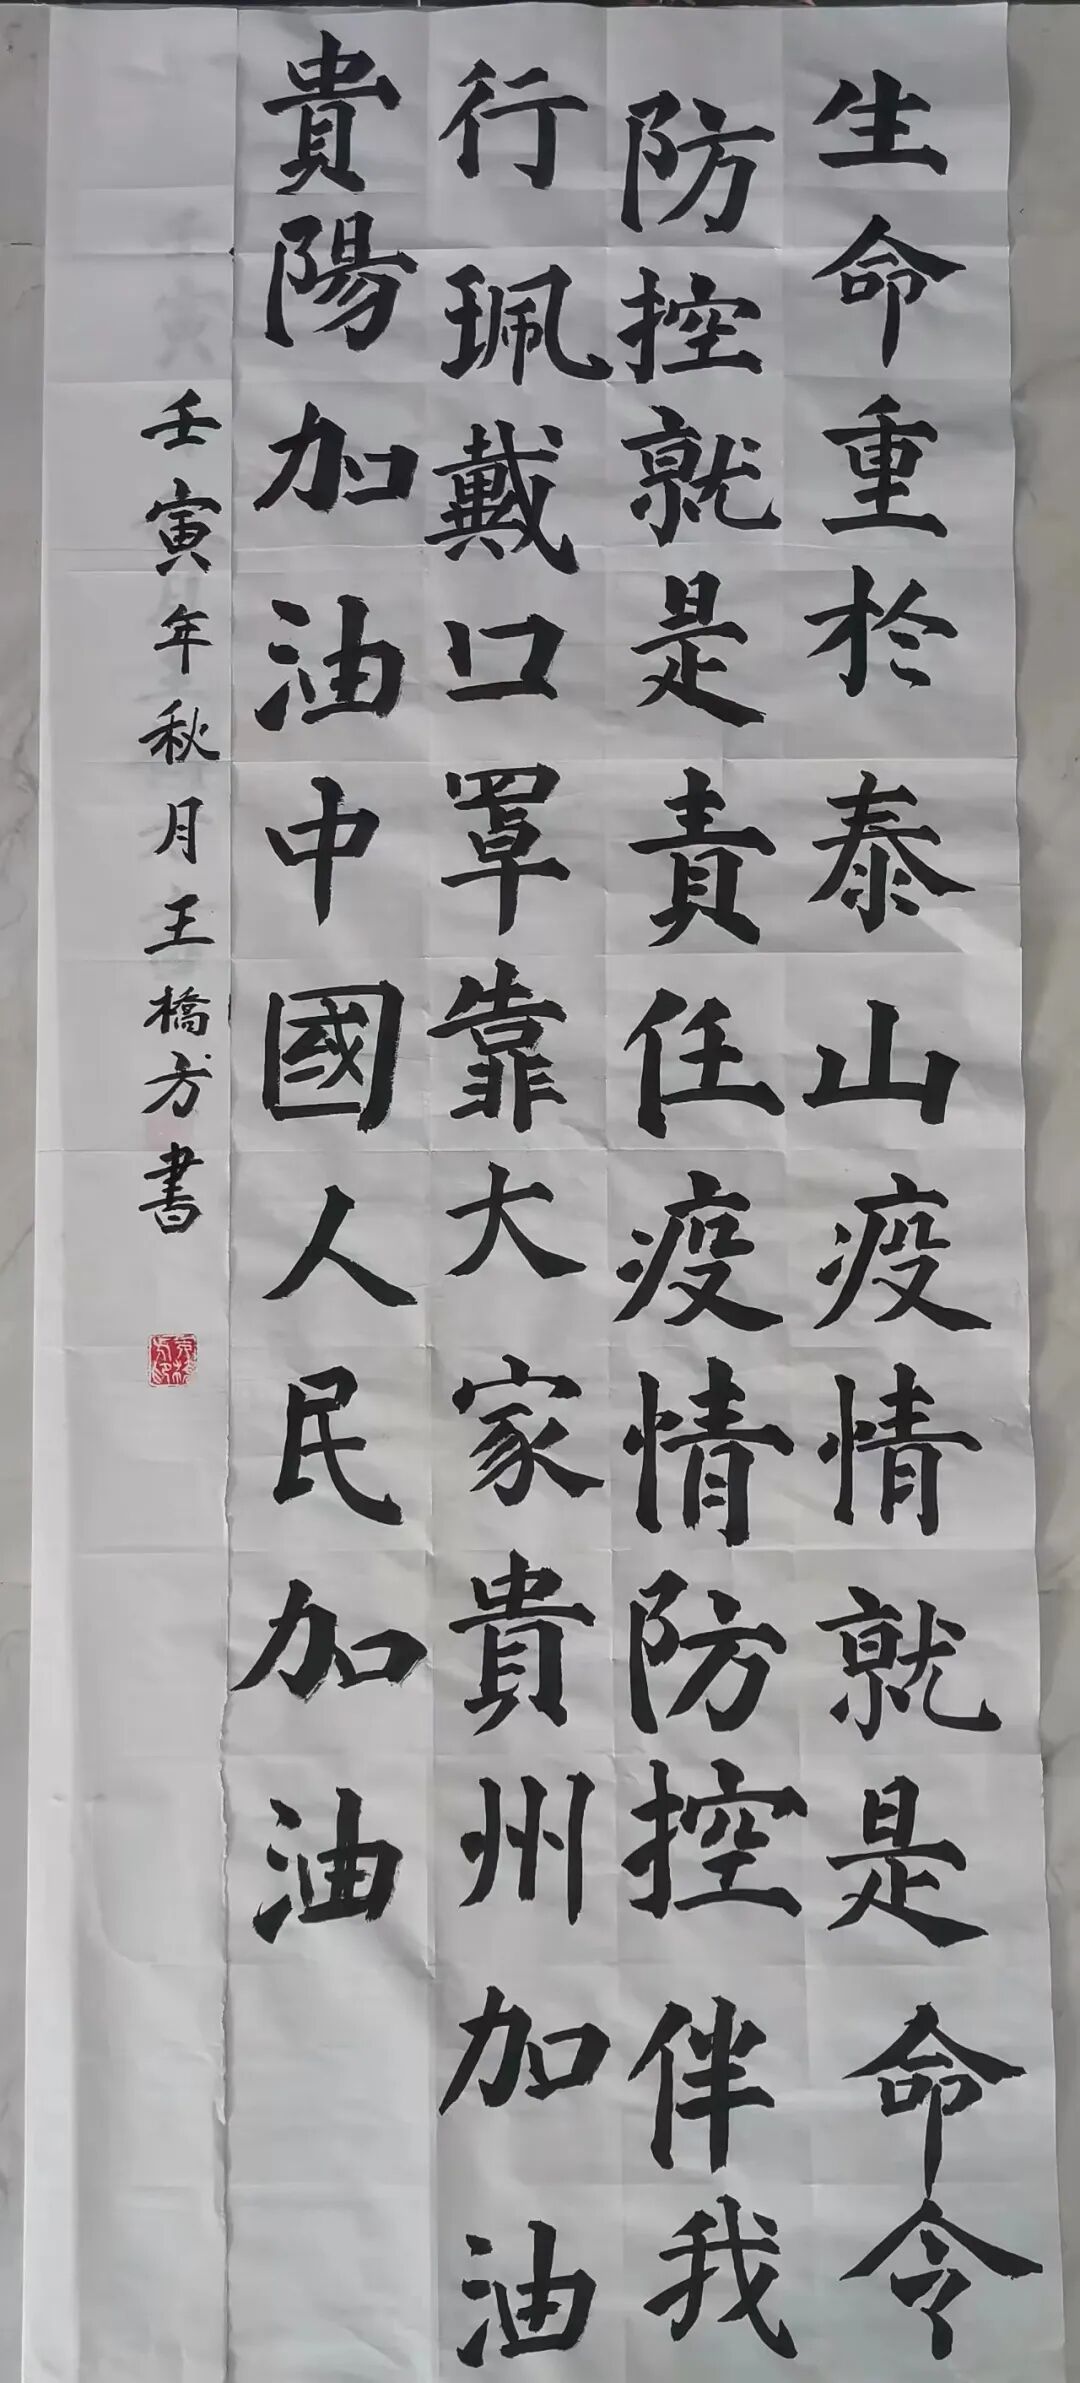 生命重於泰山疫情就是命令
防控就是責任疫情防控伴我
行珮戴口罩靠大家貴州加油
貴陽加油中國人民加油
壬寅年秋月王橋方書